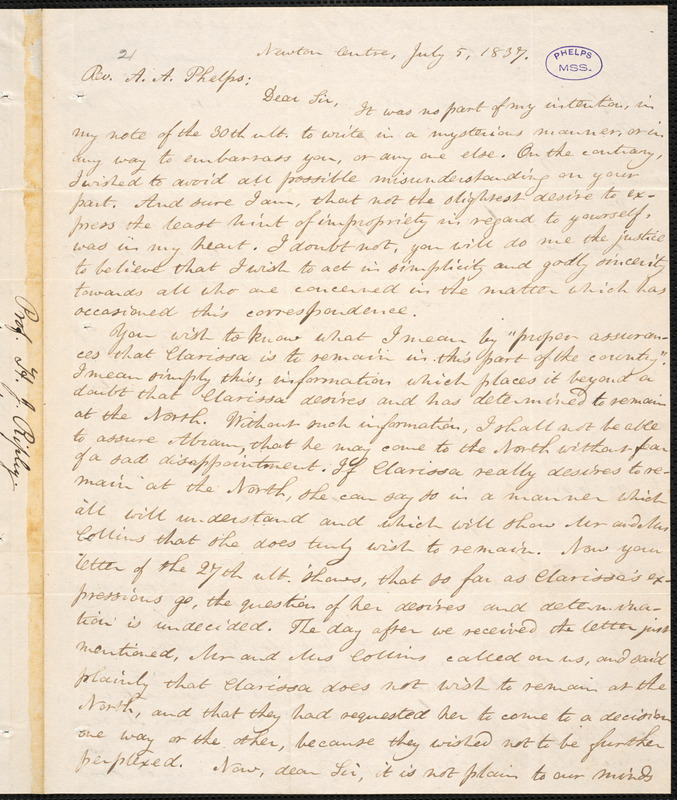 21
Newton Centre, July 5, 1837.
PHELPS
MSS.
Rev. A. A. Phelps;
Dear Sir, It was no part of my intention, in
my note of the 30th ult. to write in a mysterious manner, or in
any way to embarrass you, or any one else. On the contrary,
I wished to avoid all possible misunderstanding on your
part. And sure I am, that not the slightest desire to ex-
press the least hint of impropriety in regard to yourself,
was in my heart. I doubt not, you will do me the justice
to believe that I wish to act in simplicity and godly sincerity
towards all who are concerned in the matter which has
occasioned this correspondence.
You wish to know what I mean by "proper assuran-
ces that Clarissa is to remain in this part of the country".
I mean simply this; information which places it beyond a
doubt that Clarissa desires and has determined to remain
at the North. Without such information, I shall not be able
to assure Abram, that he may come to the North without fear
of a sad disappointment. If Clarissa really desires to re-
main at the North, she can say so in a manner which
all will understand and which will show Mr and Mrs
Collins that she does truly wish to remain. Now your
letter of the 27th ult. shows, that so far as Clarissa's ex-
pressions go, the question of her desires and determina-
tion is undecided. The day after we received the letter just
mentioned, Mr and Mrs Collins called on us, and said
plainly that Clarissa does not wish to remain at the
North, and that they had requested her to come to a decision
one way or the other, because they wished not to be further
perplexed. Now, dear Sir, it is not plain to our minds
Prof. H. J. Ripley.